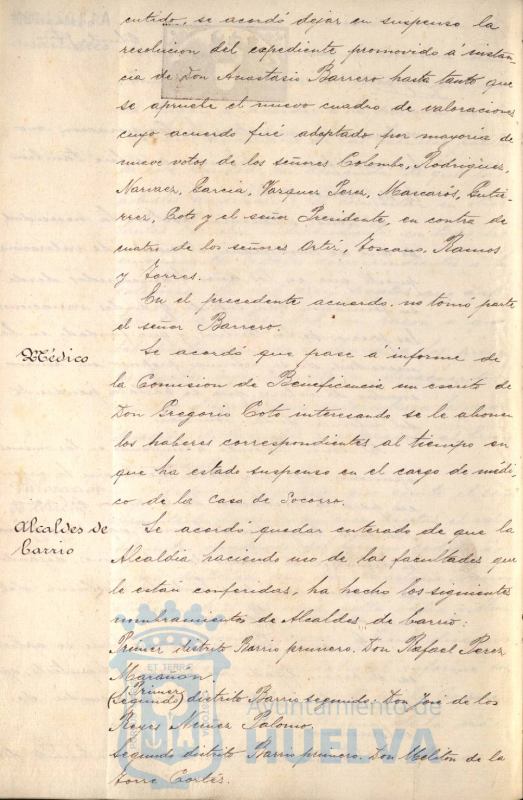 cutido, se acordó dejar en suspenso la
resolucion del expediente promovido á instan-
cia de Don Anastasio Barrero hasta tanto que
se apruebe el nuevo cuadro de valoraciones
cuyo acuerdo fué adoptado por mayoria de
nueve votos de los señores Colombo, Rodriguez,
Narvaez, Garcia, Vazquez Perez, Mascarós, Gutie-
rrez, Coto y el señor Presidente, en contra de
cuatro de los señores Ortiz, Toscano, Ramos
y Torres.
En el precedente acuerdo no tomó parte
el señor Barrero.
Médico
Se acordó que pase á informe de
la Comision de Beneficencia un escrito de
Don Gregorio Coto interesando se le abonen
los haberes correspondientes al tiempo en
que ha estado suspenso en el cargo de médi-
co de la Casa de Socorro.
Alcaldes de
barrio
Se acordó quedar enterado de que la
Alcaldia haciendo uso de las facultades que
le estan conferidas, ha hecho los siguientes
nombramientos de Alcaldes de barrio:
Primer distrito Barrio primero. Don Rafael Perez
Marañon.
Primer
(Segundo) distrito Barrio segundo. Don José de los
Reyes Nuñez Palomo.
Segundo distrito Barrio primero. Don Meliton de la
Torre Cortés.
ET TERRÆ
Ayuntamiento de
HUELVA